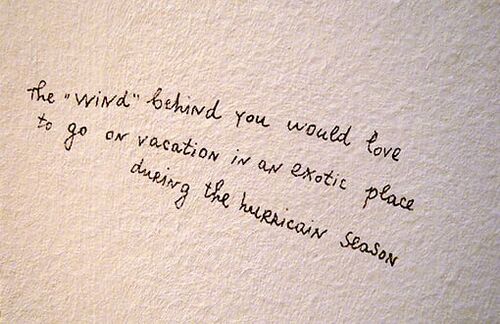 The "WiNd" behiNd you would love
to go oN vacatioN iN aN exotic place
duriNg the hurricaiN seasoN